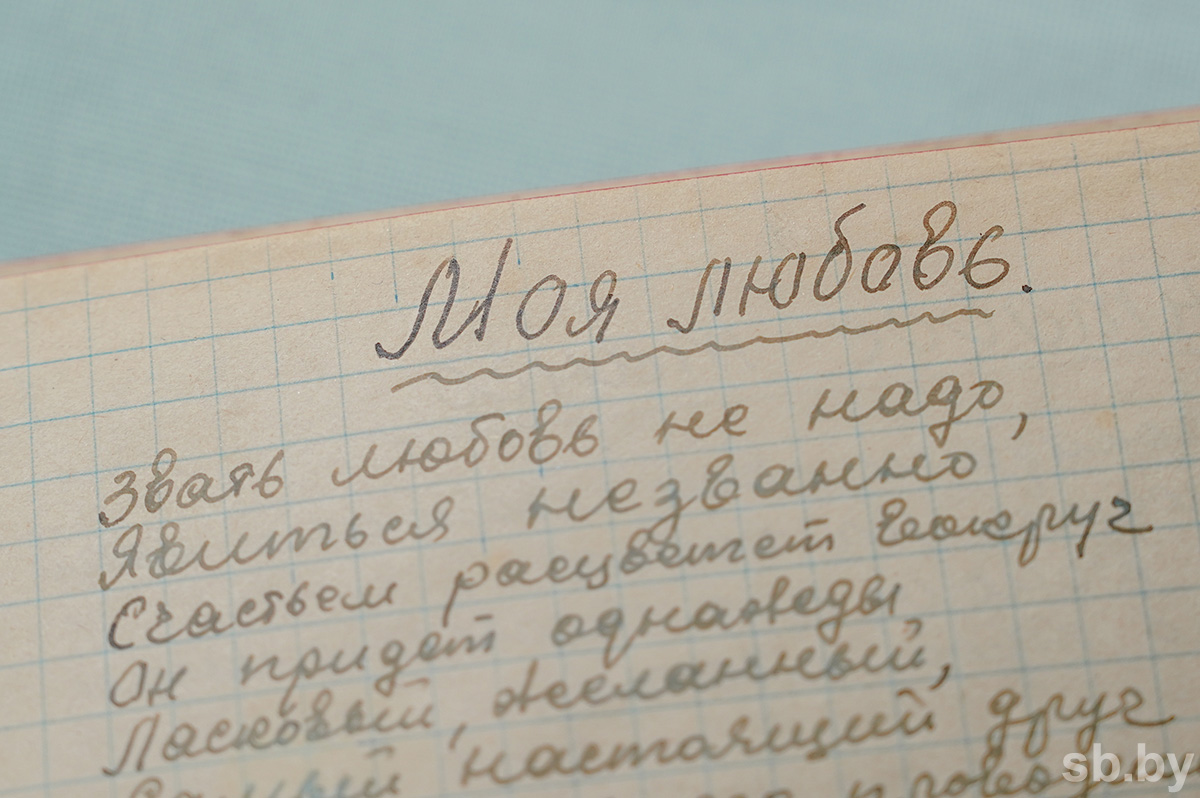 Моя любовь.
Звать любовь не надо,
Явиться незванно
Счастьем расцветет вокруг
Он придет однажды
Ласковый, желанный,
Самый настоящий друг
sb.by